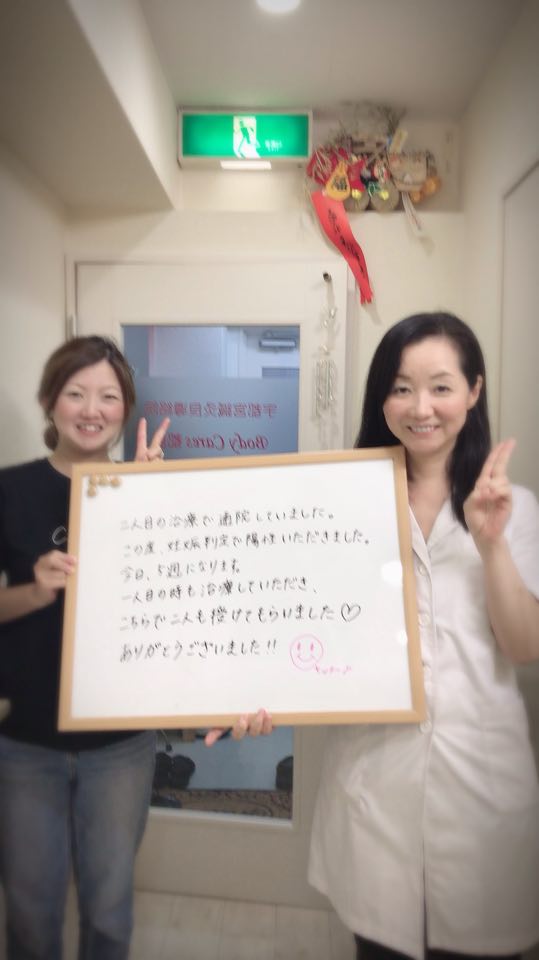 宇都宮鍼灸良導絡院
Body Cares
二人目の治療で通院していました。
この度、妊娠判定で陽性いただきました。
今日、5週になります。
一人目の時も治療していただき、
こちらで二人も授けてもらいました♡
ありがとうございました!!